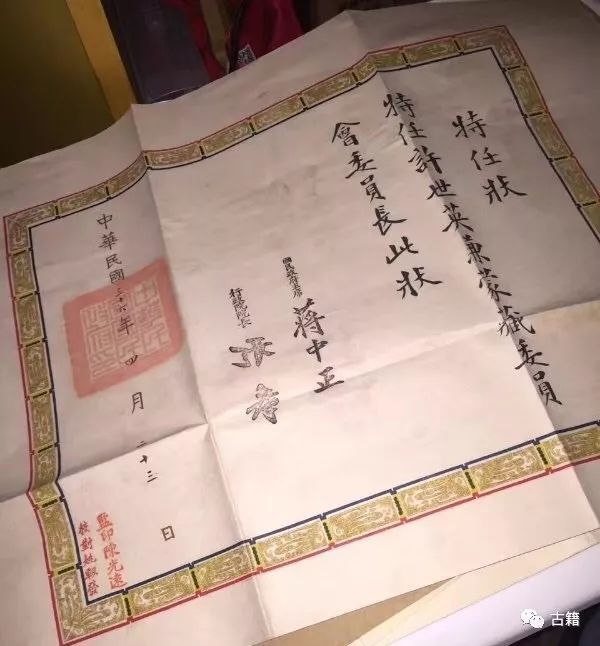 特任狀
特任許世英兼蒙藏委員
會委員長此狀
國民政府主席 蔣中正
行政院院長 張羣
中華民國三十六年四月二十三日
監印陳光遠
校對姚毅發
古籍